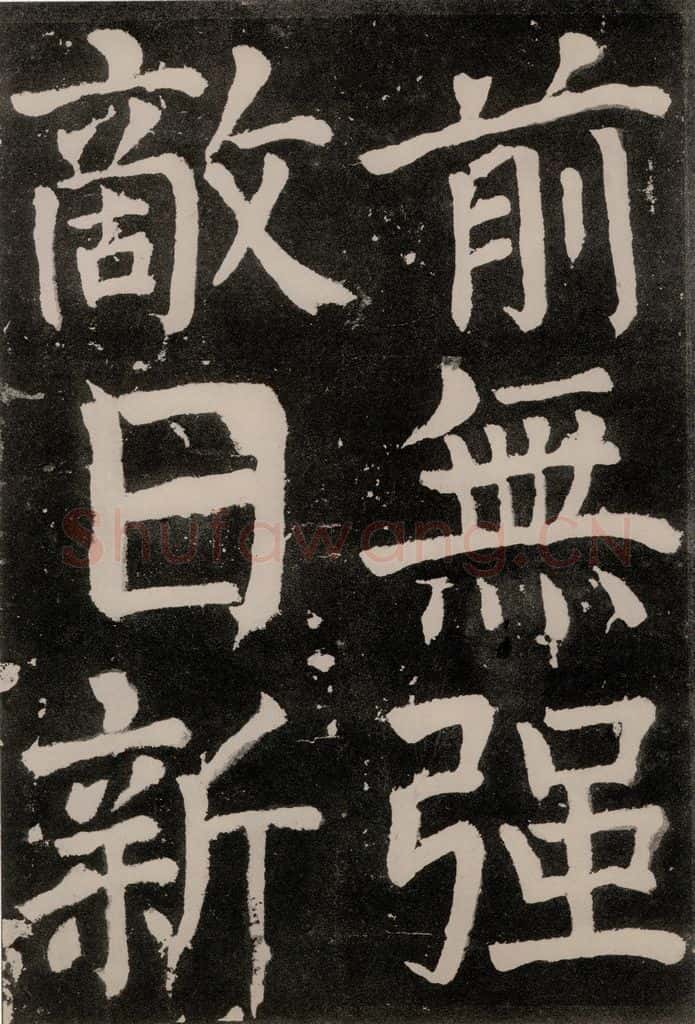 前無强
敵日新
Shufawang.CN